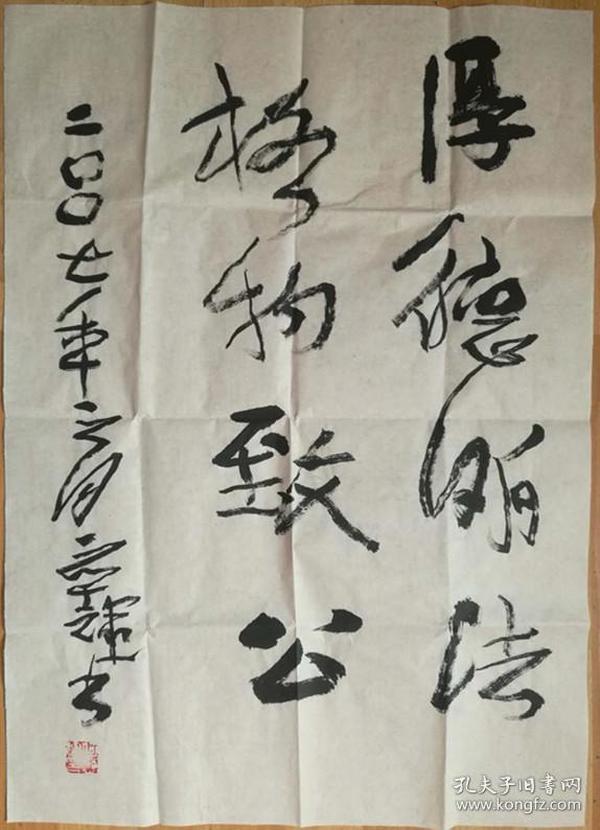 厚德明法
格物致公
二〇〇七年六月
辉书
孔夫子旧书网
www.kongfz.com